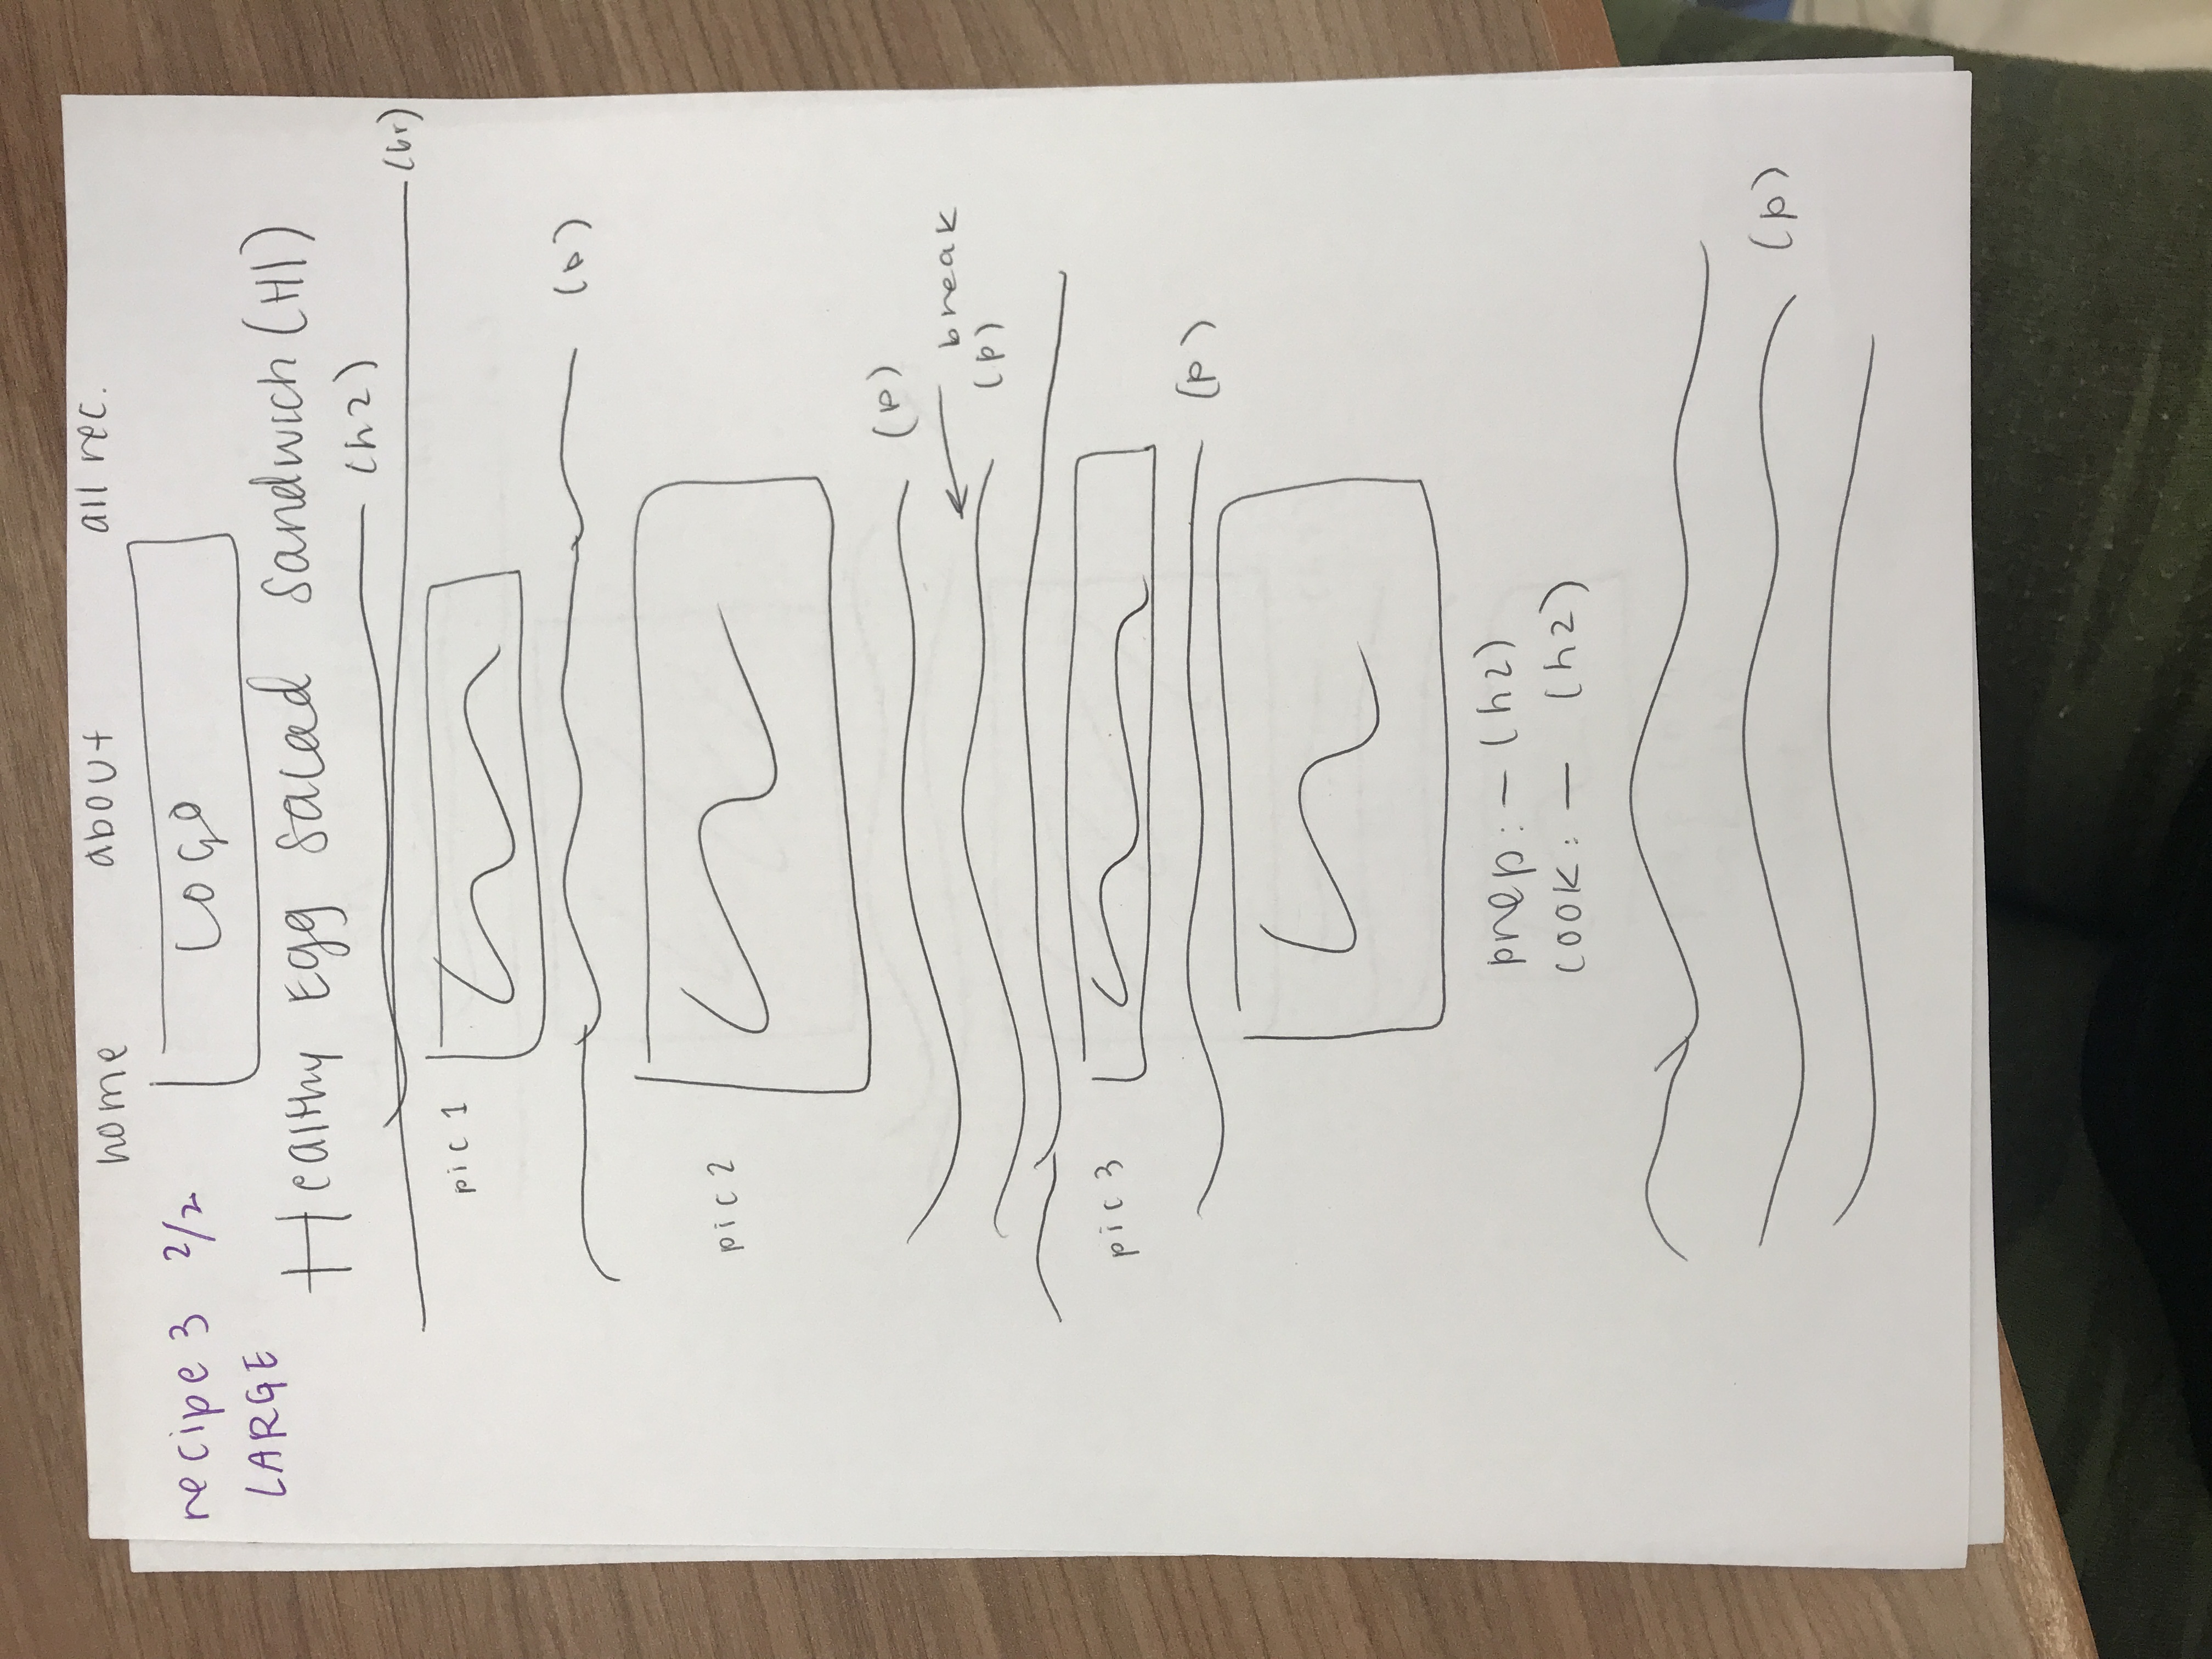 home about all rec.
recipe 3 2/2
LARGE
LOGO
Healthy Egg Salad Sandwich (H1)
(h2)
(br)
pic 1
(p)
pic 2
(p)
break
(p)
pic 3
(p)
prep: — (h2)
cook: — (h2)
(p)